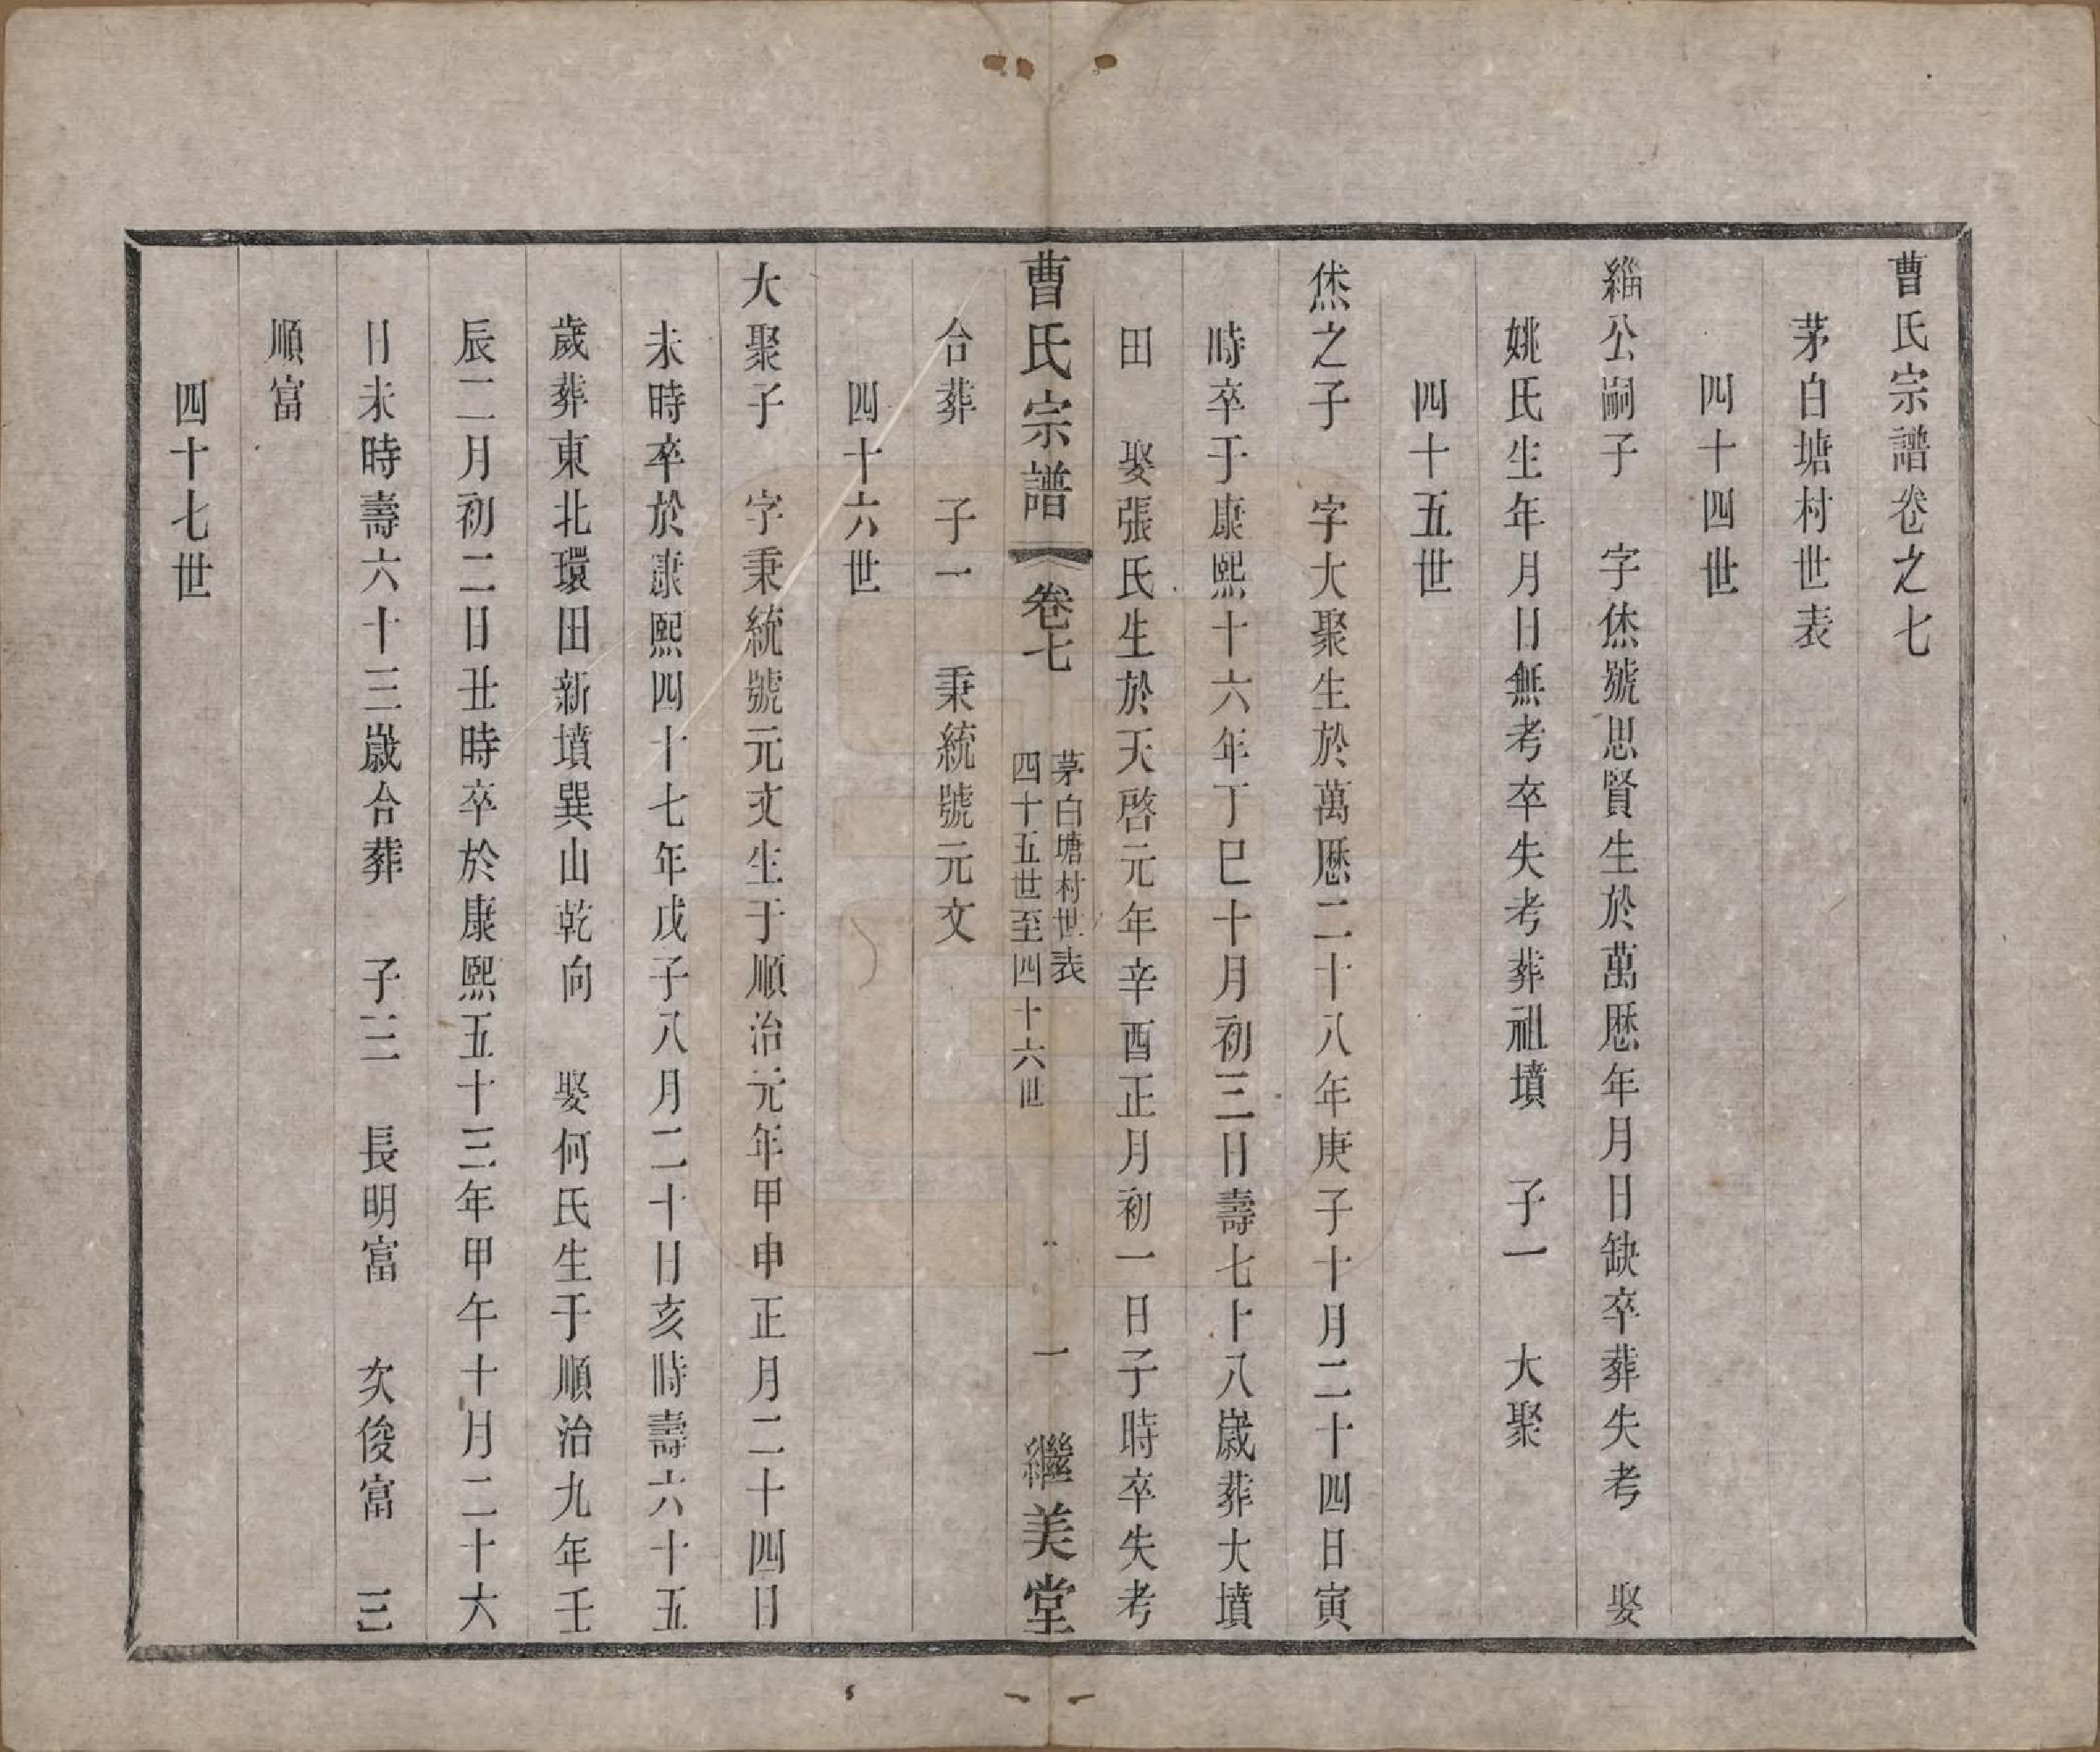 曹氏宗譜卷之七
茅白塘村世表
四十四世
緇公嗣子　字烋號思賢生於萬厯年月日缺卒葬失考　娶
姚氏生年月日無考卒失考葬祖墳　子一　大聚
四十五世
烋之子　字大聚生於萬厯二十八年庚子十月二十四日寅
時卒于康熙十六年丁巳十月初三日壽七十八歲葬大墳
田　娶張氏生於天啓元年辛酉正月初一日子時卒失考
曹氏宗譜　卷七　茅白塘村世表　四十五世至四十六世　一　繼美堂
合葬　子一　秉統號元文
四十六世
大聚子　字秉統號元文生于順治元年甲申正月二十四日
未時卒於康熙四十七年戊子八月二十日亥時壽六十五
歲葬東北環田新墳巽山乾向　娶何氏生于順治九年壬
辰二月初二日丑時卒於康熙五十三年甲午十月二十六
日未時壽六十三歲合葬　子三　長明富　次俊富　三
順富
四十七世